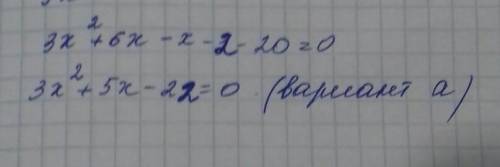 3x² + 6x - x - 2 - 20 = 0
3x² + 5x - 22 = 0 (вариант а)